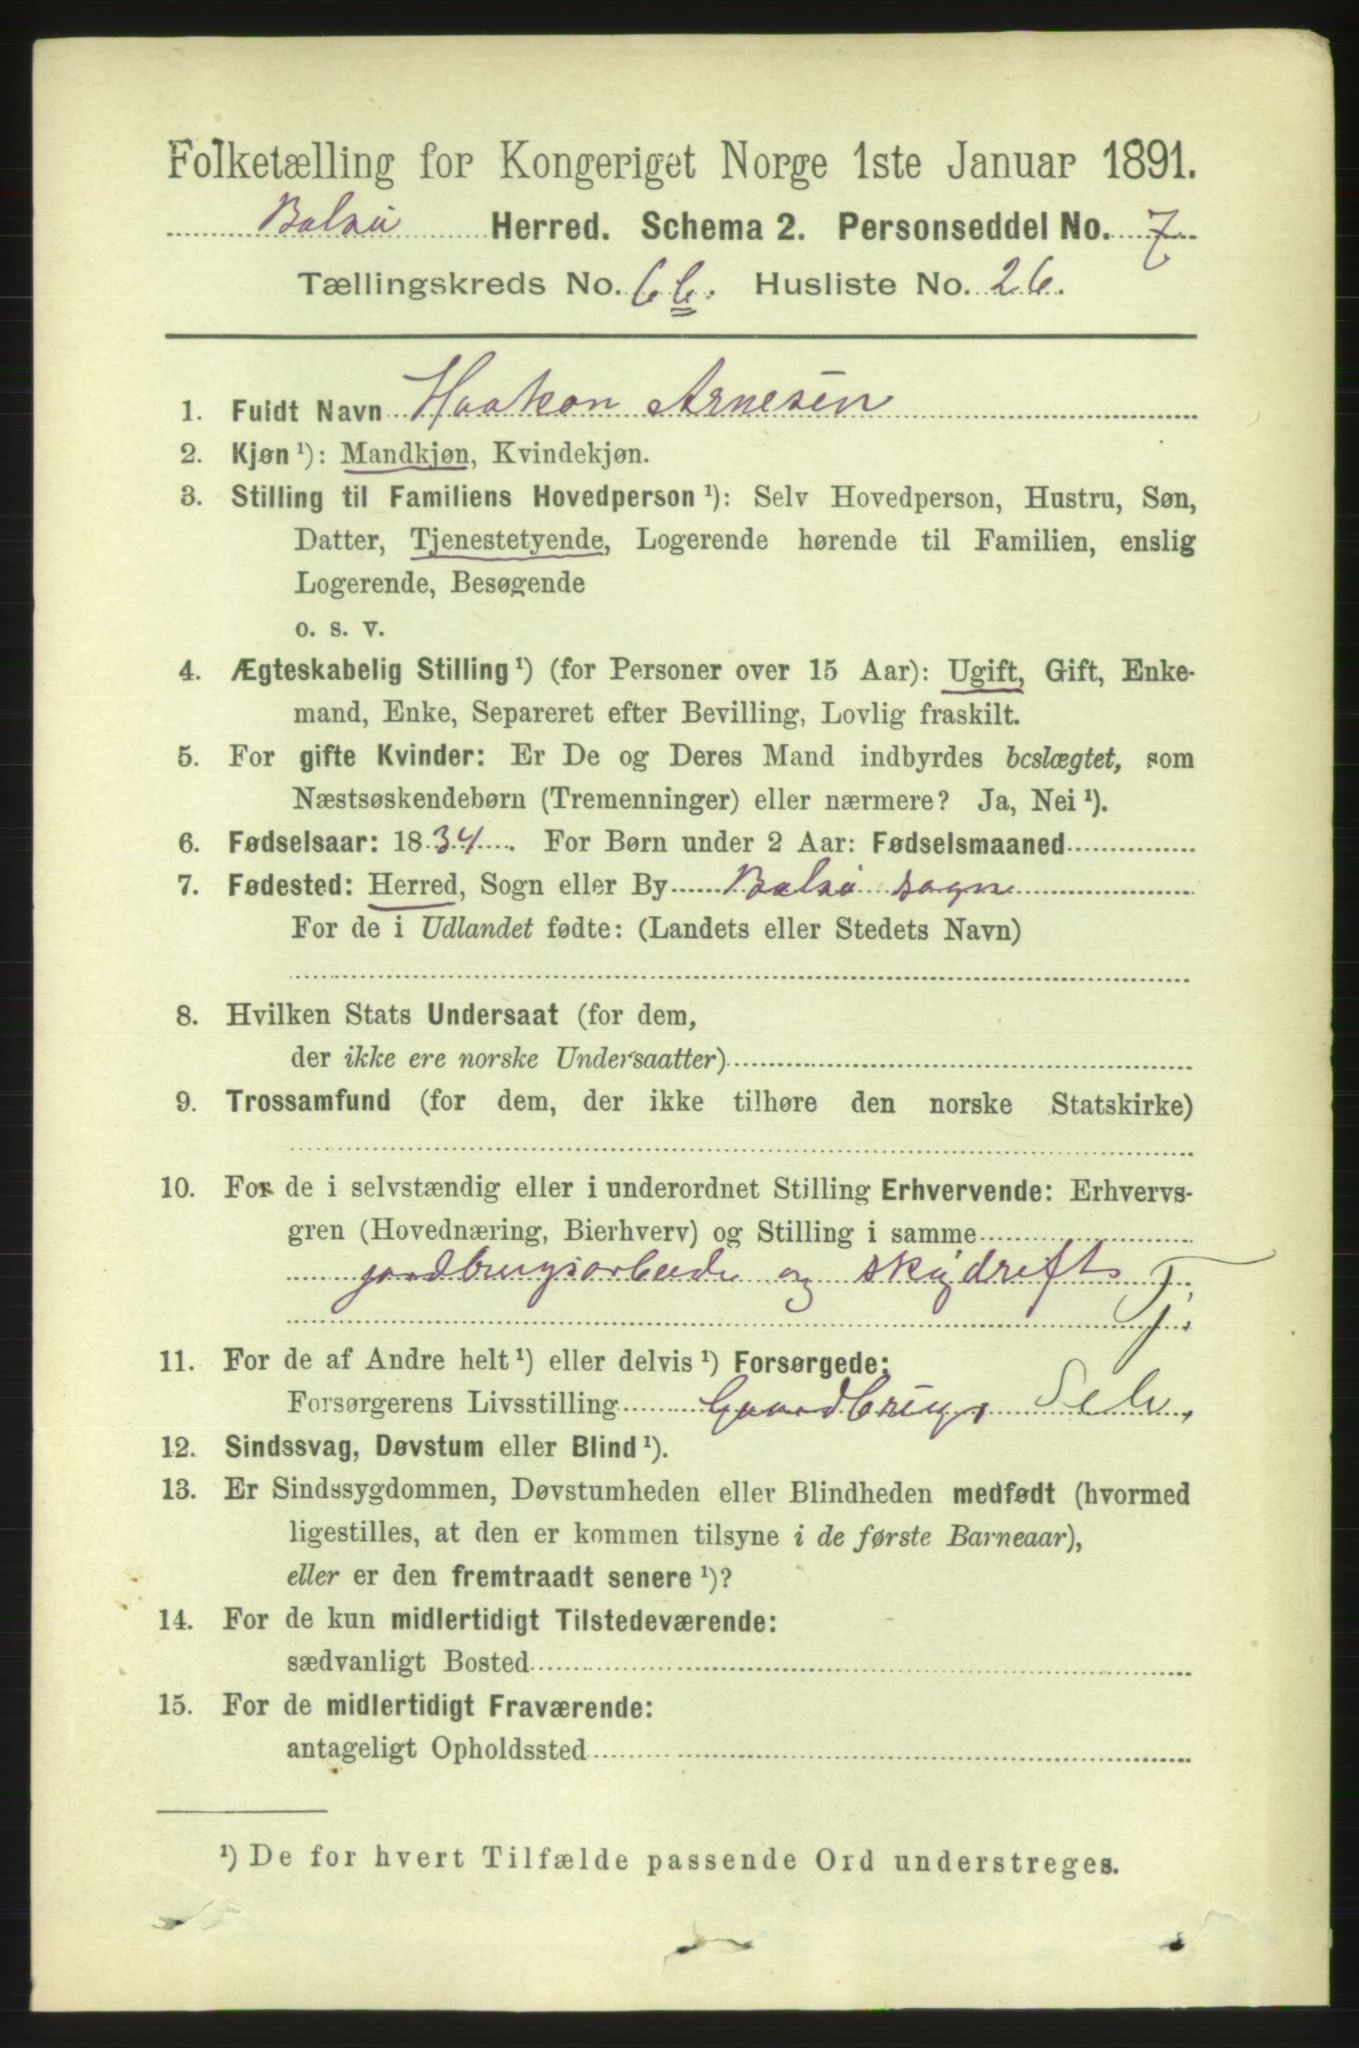 Folketælling for Kongeriget Norge 1ste Januar 1891.
Balsø Herred. Schema 2. Personseddel No. 7
Tællingskreds No. 6 b. Husliste No. 26.
1. Fuldt Navn Haakon Arnesen
2. Kjøn ¹): Mandkjøn, Kvindekjøn.
3. Stilling til Familiens Hovedperson ¹): Selv Hovedperson, Hustru, Søn,
Datter, Tjenestetyende, Logerende hørende til Familien, enslig
Logerende, Besøgende
o. s. v.
4. Ægteskabelig Stilling ¹) (for Personer over 15 Aar): Ugift, Gift, Enke-
mand, Enke, Separeret efter Bevilling, Lovlig fraskilt.
5. For gifte Kvinder: Er De og Deres Mand indbyrdes beslægtet, som
Næstsøskendebørn (Tremenninger) eller nærmere? Ja, Nei ¹).
6. Fødselsaar: 1834. For Børn under 2 Aar: Fødselsmaaned
7. Fødested: Herred, Sogn eller By Balsø sogn
For de i Udlandet fødte: (Landets eller Stedets Navn)
8. Hvilken Stats Undersaat (for dem,
der ikke ere norske Undersaatter)
9. Trossamfund (for dem, der ikke tilhøre den norske Statskirke)
10. For de i selvstændig eller i underordnet Stilling Erhvervende: Erhvervs-
gren (Hovednæring, Bierhverv) og Stilling i samme
jordbrugsarbeide og
T.
11. For de af Andre helt ¹) eller delvis ¹) Forsørgede:
Forsørgerens Livsstilling Gaardbrug, Selv.
12. Sindssvag, Døvstum eller Blind ¹).
13. Er Sindssygdommen, Døvstumheden eller Blindheden medfødt (hvormed
ligestilles, at den er kommen tilsyne i de første Barneaar),
eller er den fremtraadt senere ¹)?
14. For de kun midlertidigt Tilstedeværende:
sædvanligt Bosted
15. For de midlertidigt Fraværende:
antageligt Opholdssted
¹) De for hvert Tilfælde passende Ord understreges.